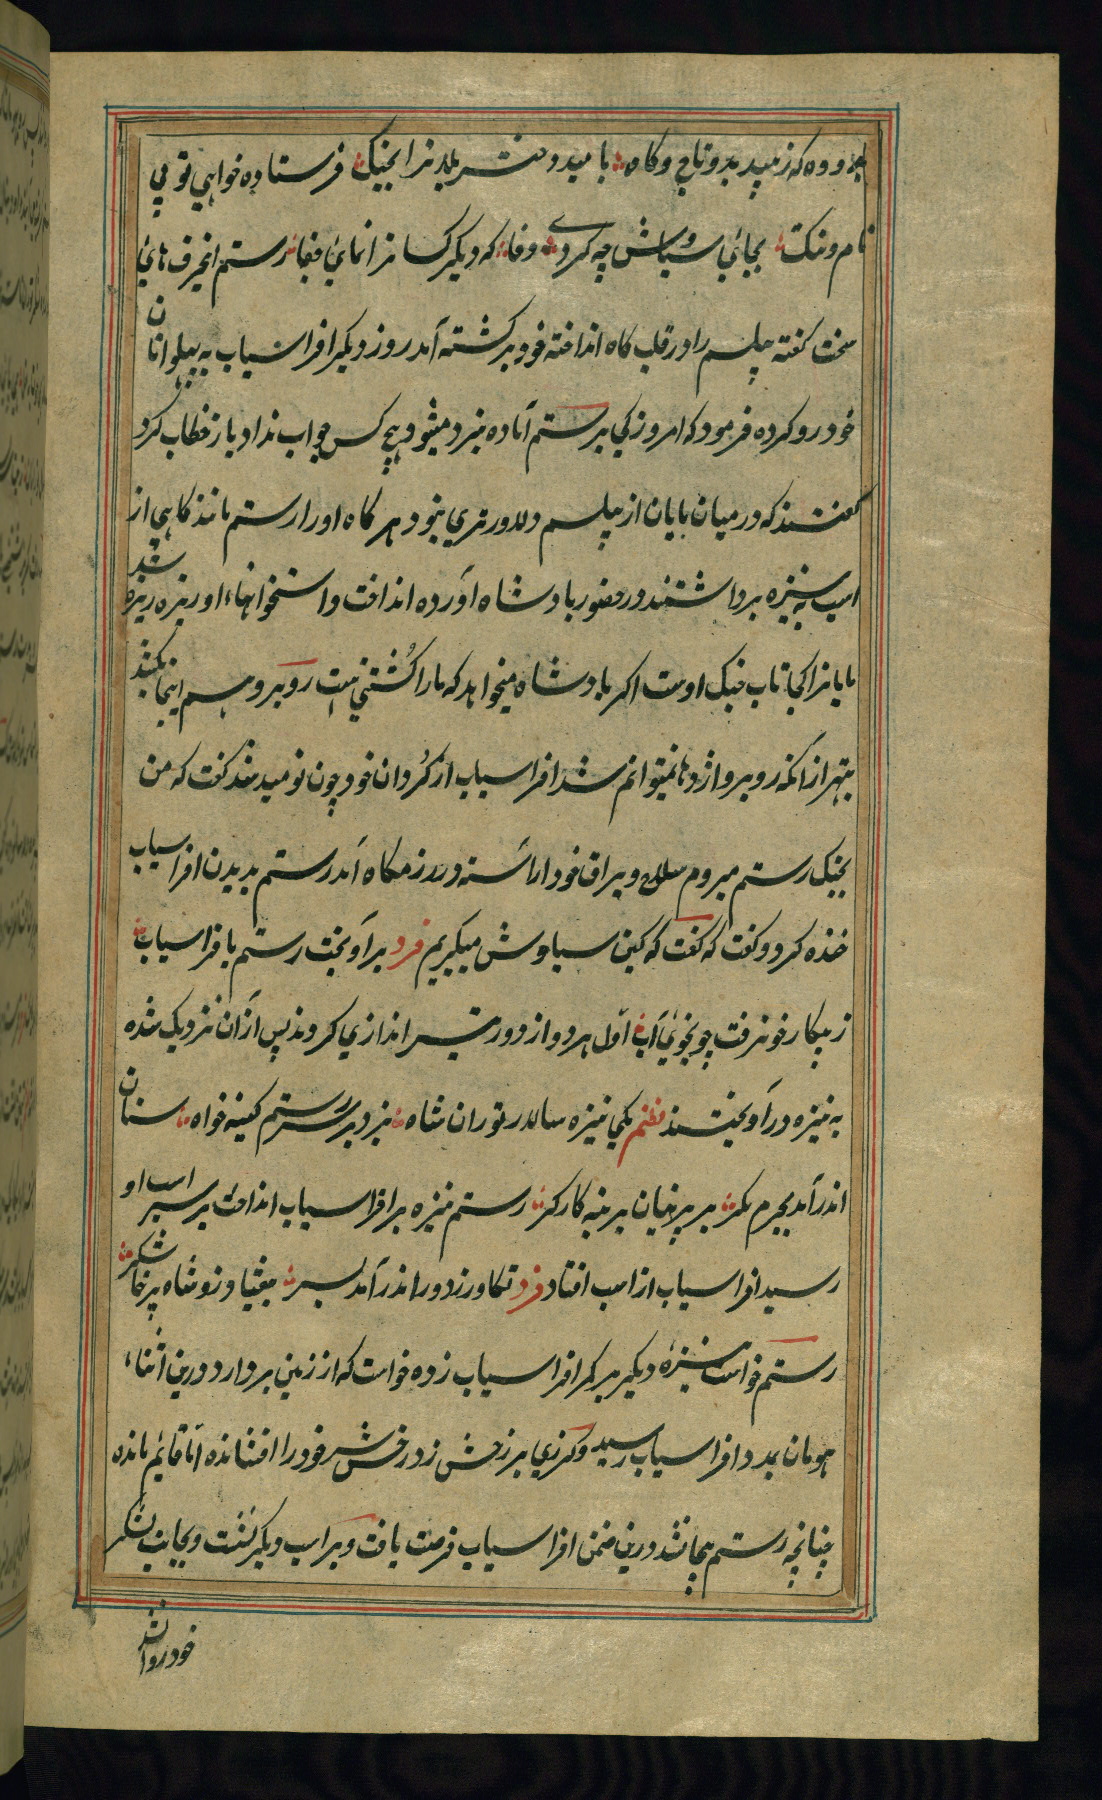 که زیبد بدو تاج و گاه بامید دختر پلید ترا بجنگ فرستاده خواهی تو بی
نام و ننگ بجای سیاوش چه کردی وفا که دیگر کسانرا نمای جفا رستم اینحرف های
سخت کفته پیلسم را در قلب کاه انداخته خود برکشته آمد روز دیکر افراسیاب به پهلوانان
خود رو کرده فرمود که امروز کی برستم آماده نبرد میشود هیچ کس جواب نداد باز خطاب کرد
کفتند که در میان مایان از پیلسم دلاورتری نبود هر کاه او را رستم مانند کاهی از
اسپ به نیزه برداشته در حضور بادشاه آورده انداخت و استخوانهاء او ریزه ریزه شد
مایانرا کجا تاب جنک اوست اکر بادشاه میخواهد که ما را کُشتنی است روبرو هم اینجا بکشد
بهتر از آنکه روبرو اژدها نمیتوانم شد افراسیاب از کُردان خود چون نومید شد کفت که من
بجنک رستم میروم سلاح و یراق خود آراسته در رزمکاه آمد رستم بدیدن افراسیاب
خنده کرد و کفت که کفت که کین سیاوش میکیریم فرد برآویخت رستم بافراسیاب
ز پیکار خون رفت چو بجوی آب اول هر دو از دور تیر اندازی کردند پس از آن نزدیک شده
به نیزه درآویختند نظم یکی نیزه سالار توران شاه بزد بر بر رستم کینه خواه سنان
اندر آمد بچرم کمر به ببر بیان بر نبد کارکر رستم نیزه بر افراسیاب انداخت بر سر اسپ او
رسید افراسیاب از اسپ افتاد فرد تکاور ز درد اندر آمد بسر بیفتاد زو شاه پرخاشخر
رستم خواست نیزه دیکر بر کمر افراسیاب زده خواست که از زمین بردارد درین اثناء
هومان بمدد افراسیاب رسید و کرزی بر رخش زد رخش سر خود را افشانده اما قایم مانده
چنانچه رستم درین ضمن افراسیاب فرصت یافت و بر اسپ دیکر نشست و بجانب لشکر
خود روان شد